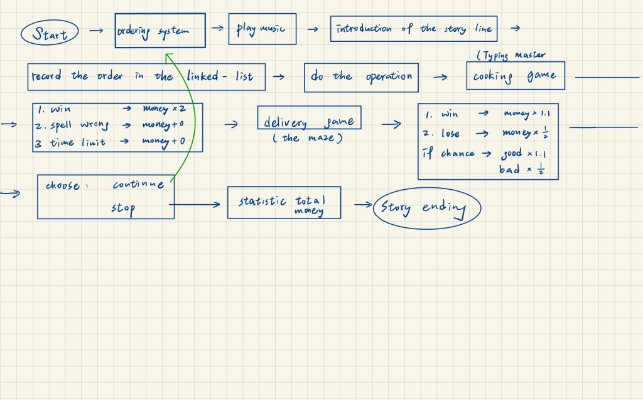 Start
ordering system
play music
introduction of the story line
record the order in the linked-list
do the operation
(Typing master
cooking game
1. win → money ×2
2. spell wrong → money+0
3 time limit → money+0
delivery game
(the maze)
1. win → money×1.1
2. lose → money×1/2
if chance → good ×1.1
bad × 1/2
choose: continue
stop
statistic total
money
Story ending